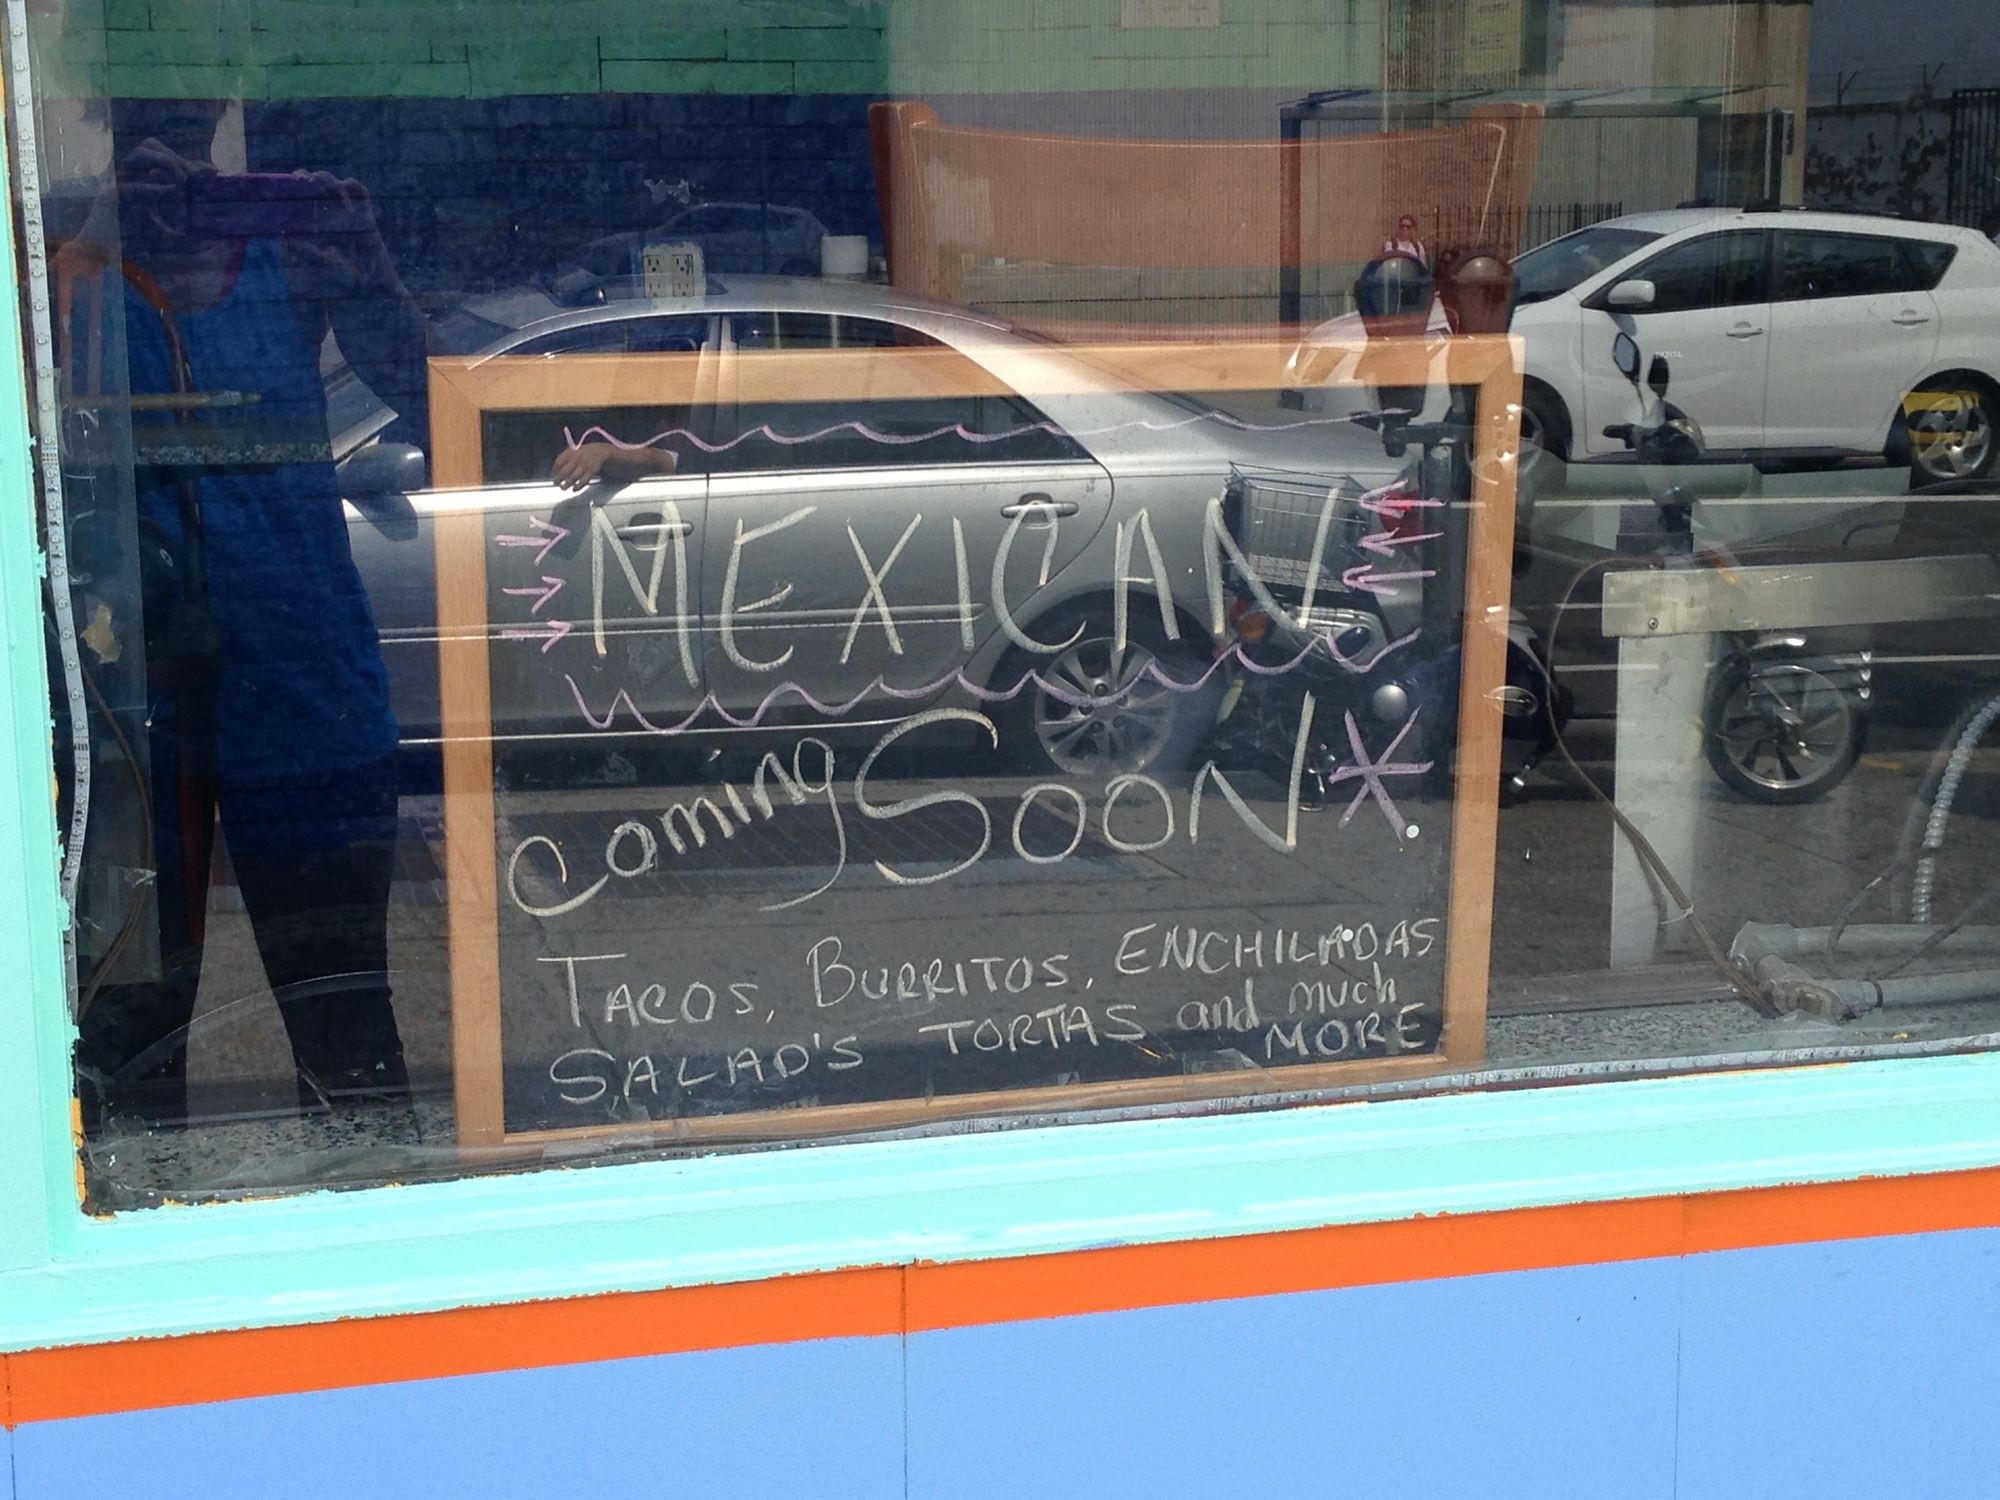 MEXICAN
Coming SOON
TACOS, BURRITOS, ENCHILADAS
SALAD'S TORTAS and much
MORE